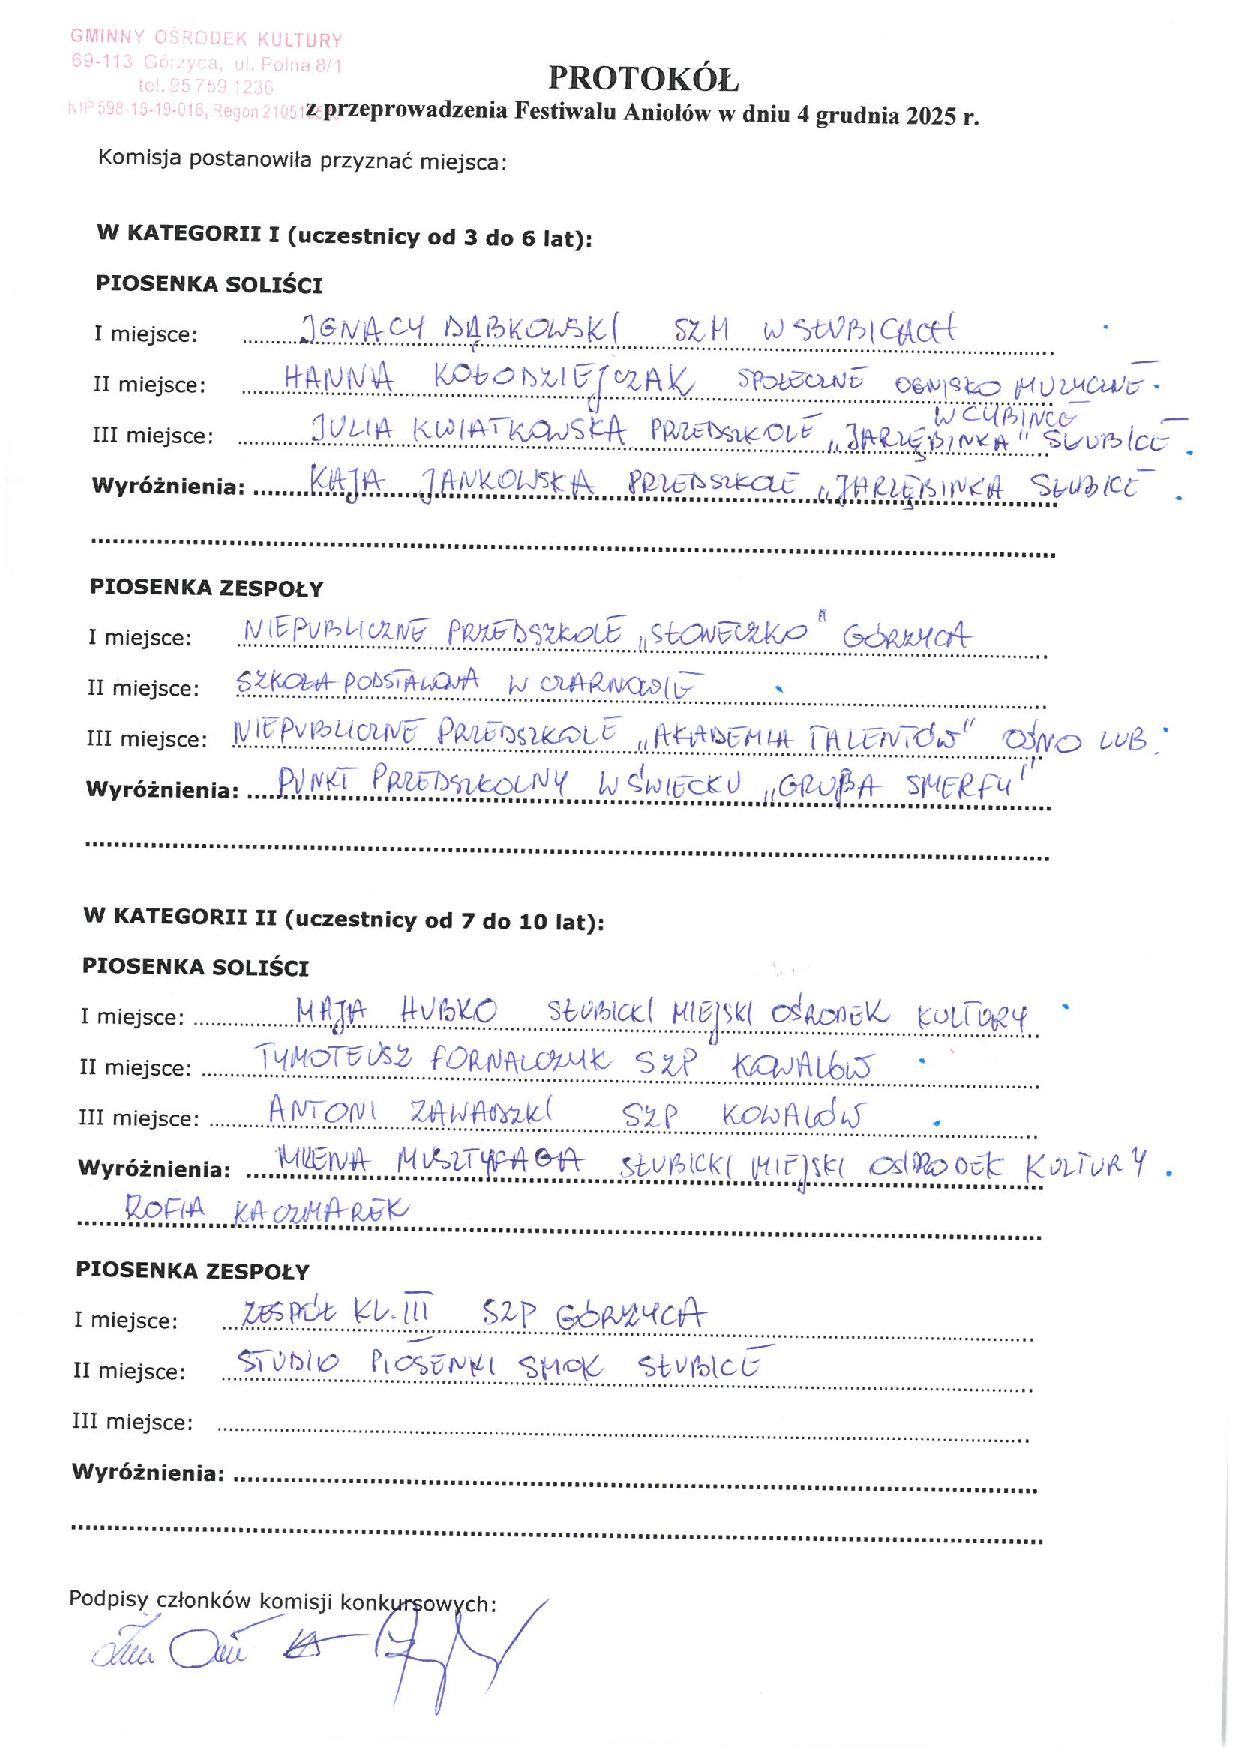 GMINNY OŚRODEK KULTURY
69-113 Górzyca, ul. Polna 8/1
tel. 95 759 1236
NIP 598-15-19-016, Regon 21051
PROTOKÓŁ
z przeprowadzenia Festiwalu Aniołów w dniu 4 grudnia 2025 r.
Komisja postanowiła przyznać miejsca:
W KATEGORII I (uczestnicy od 3 do 6 lat):
PIOSENKA SOLIŚCI
I miejsce: IGNACY DĄBKOWSKI SZM W SŁUBICACH
II miejsce: HANNA KOŁODZIEJCZAK SPOŁECZNE OGNISKO MUZYCZNE
W CYBINCE
III miejsce: JULIA KWIATKOWSKA PRZEDSZKOLE „JARZĘBINKA" SŁUBICE
Wyróżnienia: KAJA JANKOWSKA PRZEDSZKOLE „JARZĘBINKA SŁUBICE
PIOSENKA ZESPOŁY
I miejsce: NIEPUBLICZNE PRZEDSZKOLE „SŁONECZKO" GÓRZYCA
II miejsce: SZKOŁA PODSTAWOWA W CZARNOWIE
III miejsce: NIEPUBLICZNE PRZEDSZKOLE „AKADEMIA TALENTÓW" OŚNO LUB.
Wyróżnienia: PUNKT PRZEDSZKOLNY W ŚWIECKU „GRUPA SMERFY"
W KATEGORII II (uczestnicy od 7 do 10 lat):
PIOSENKA SOLIŚCI
I miejsce: MAJA HUBKO SŁUBICKI MIEJSKI OŚRODEK KULTURY
II miejsce: TYMOTEUSZ FORNALCZYK SZP KOWALÓW
III miejsce: ANTONI ZAWADZKI SZP KOWALÓW
Wyróżnienia: MILENA SŁUBICKI MIEJSKI OŚRODEK KULTURY
ZOFIA KACZMAREK
PIOSENKA ZESPOŁY
I miejsce: ZESPÓŁ KL. III SZP GÓRZYCA
II miejsce: STUDIO PIOSENKI SMOK SŁUBICE
III miejsce:
Wyróżnienia:
Podpisy członków komisji konkursowych: